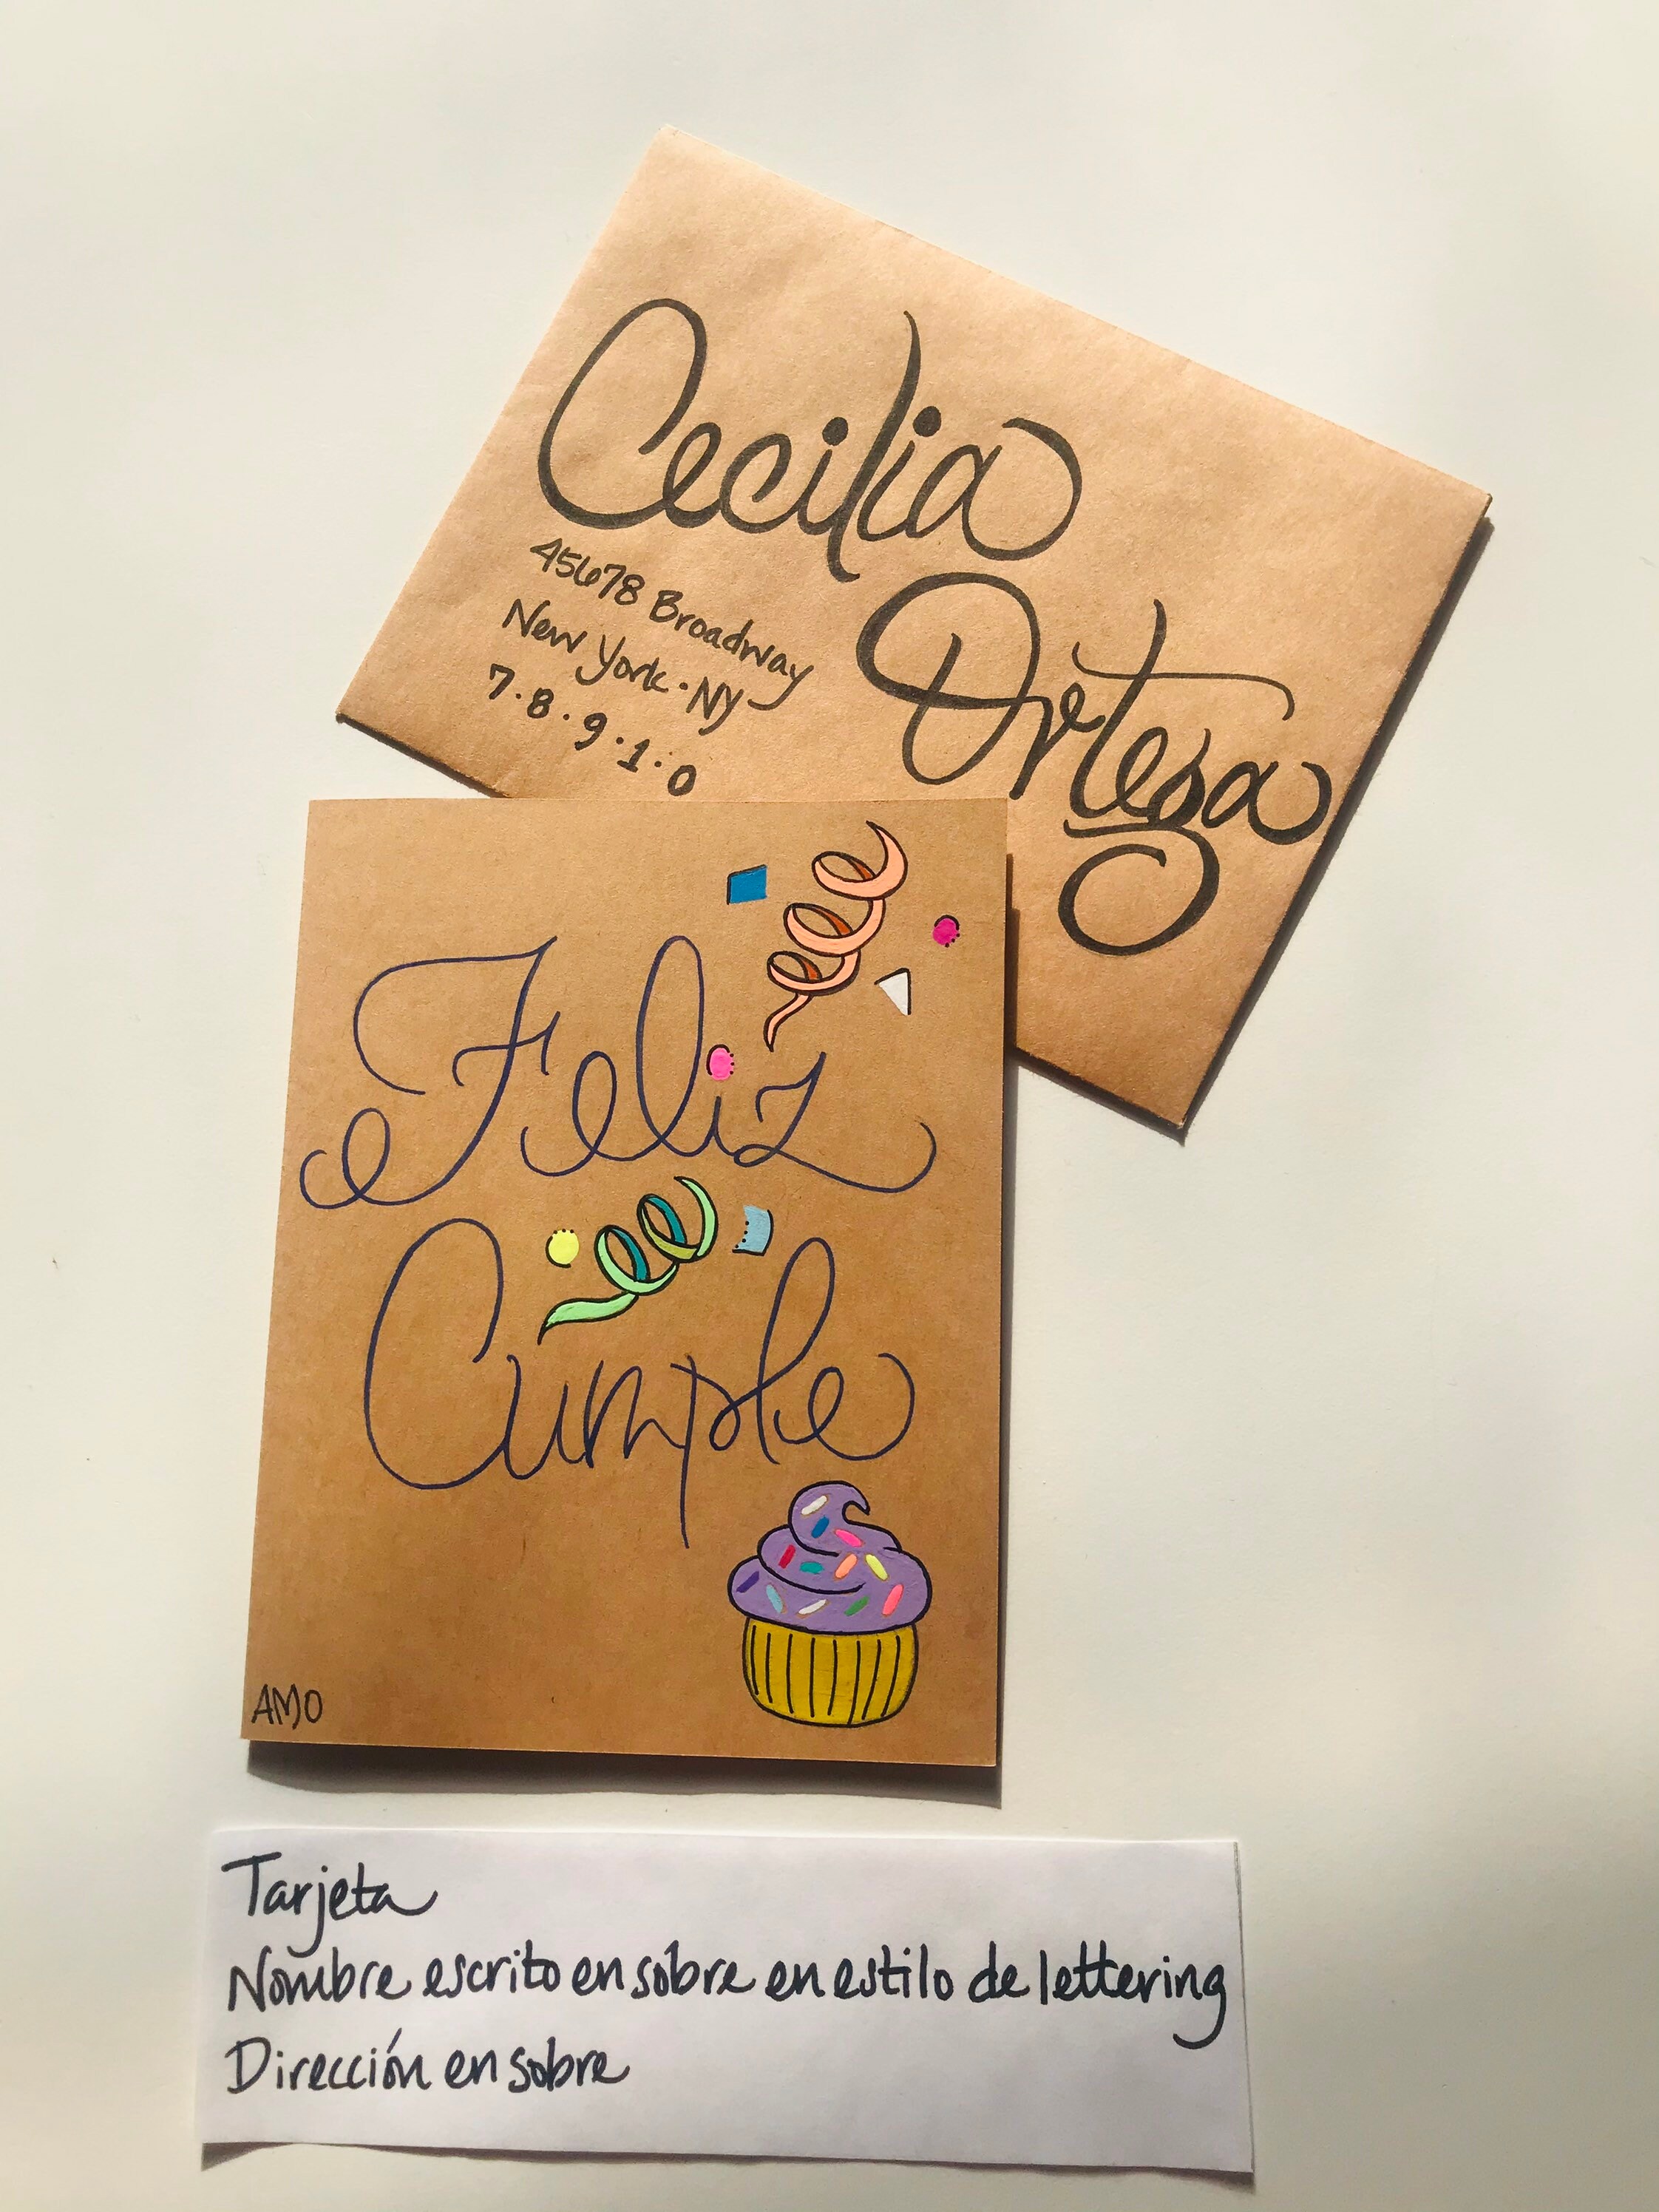 Cecilia
Ortega
45678 Broadway
New York · NY
7 · 8 · 9 · 1 · 0
Feliz
Cumple
AMO
Tarjeta
Nombre escrito en sobre en estilo de lettering
Dirección en sobre